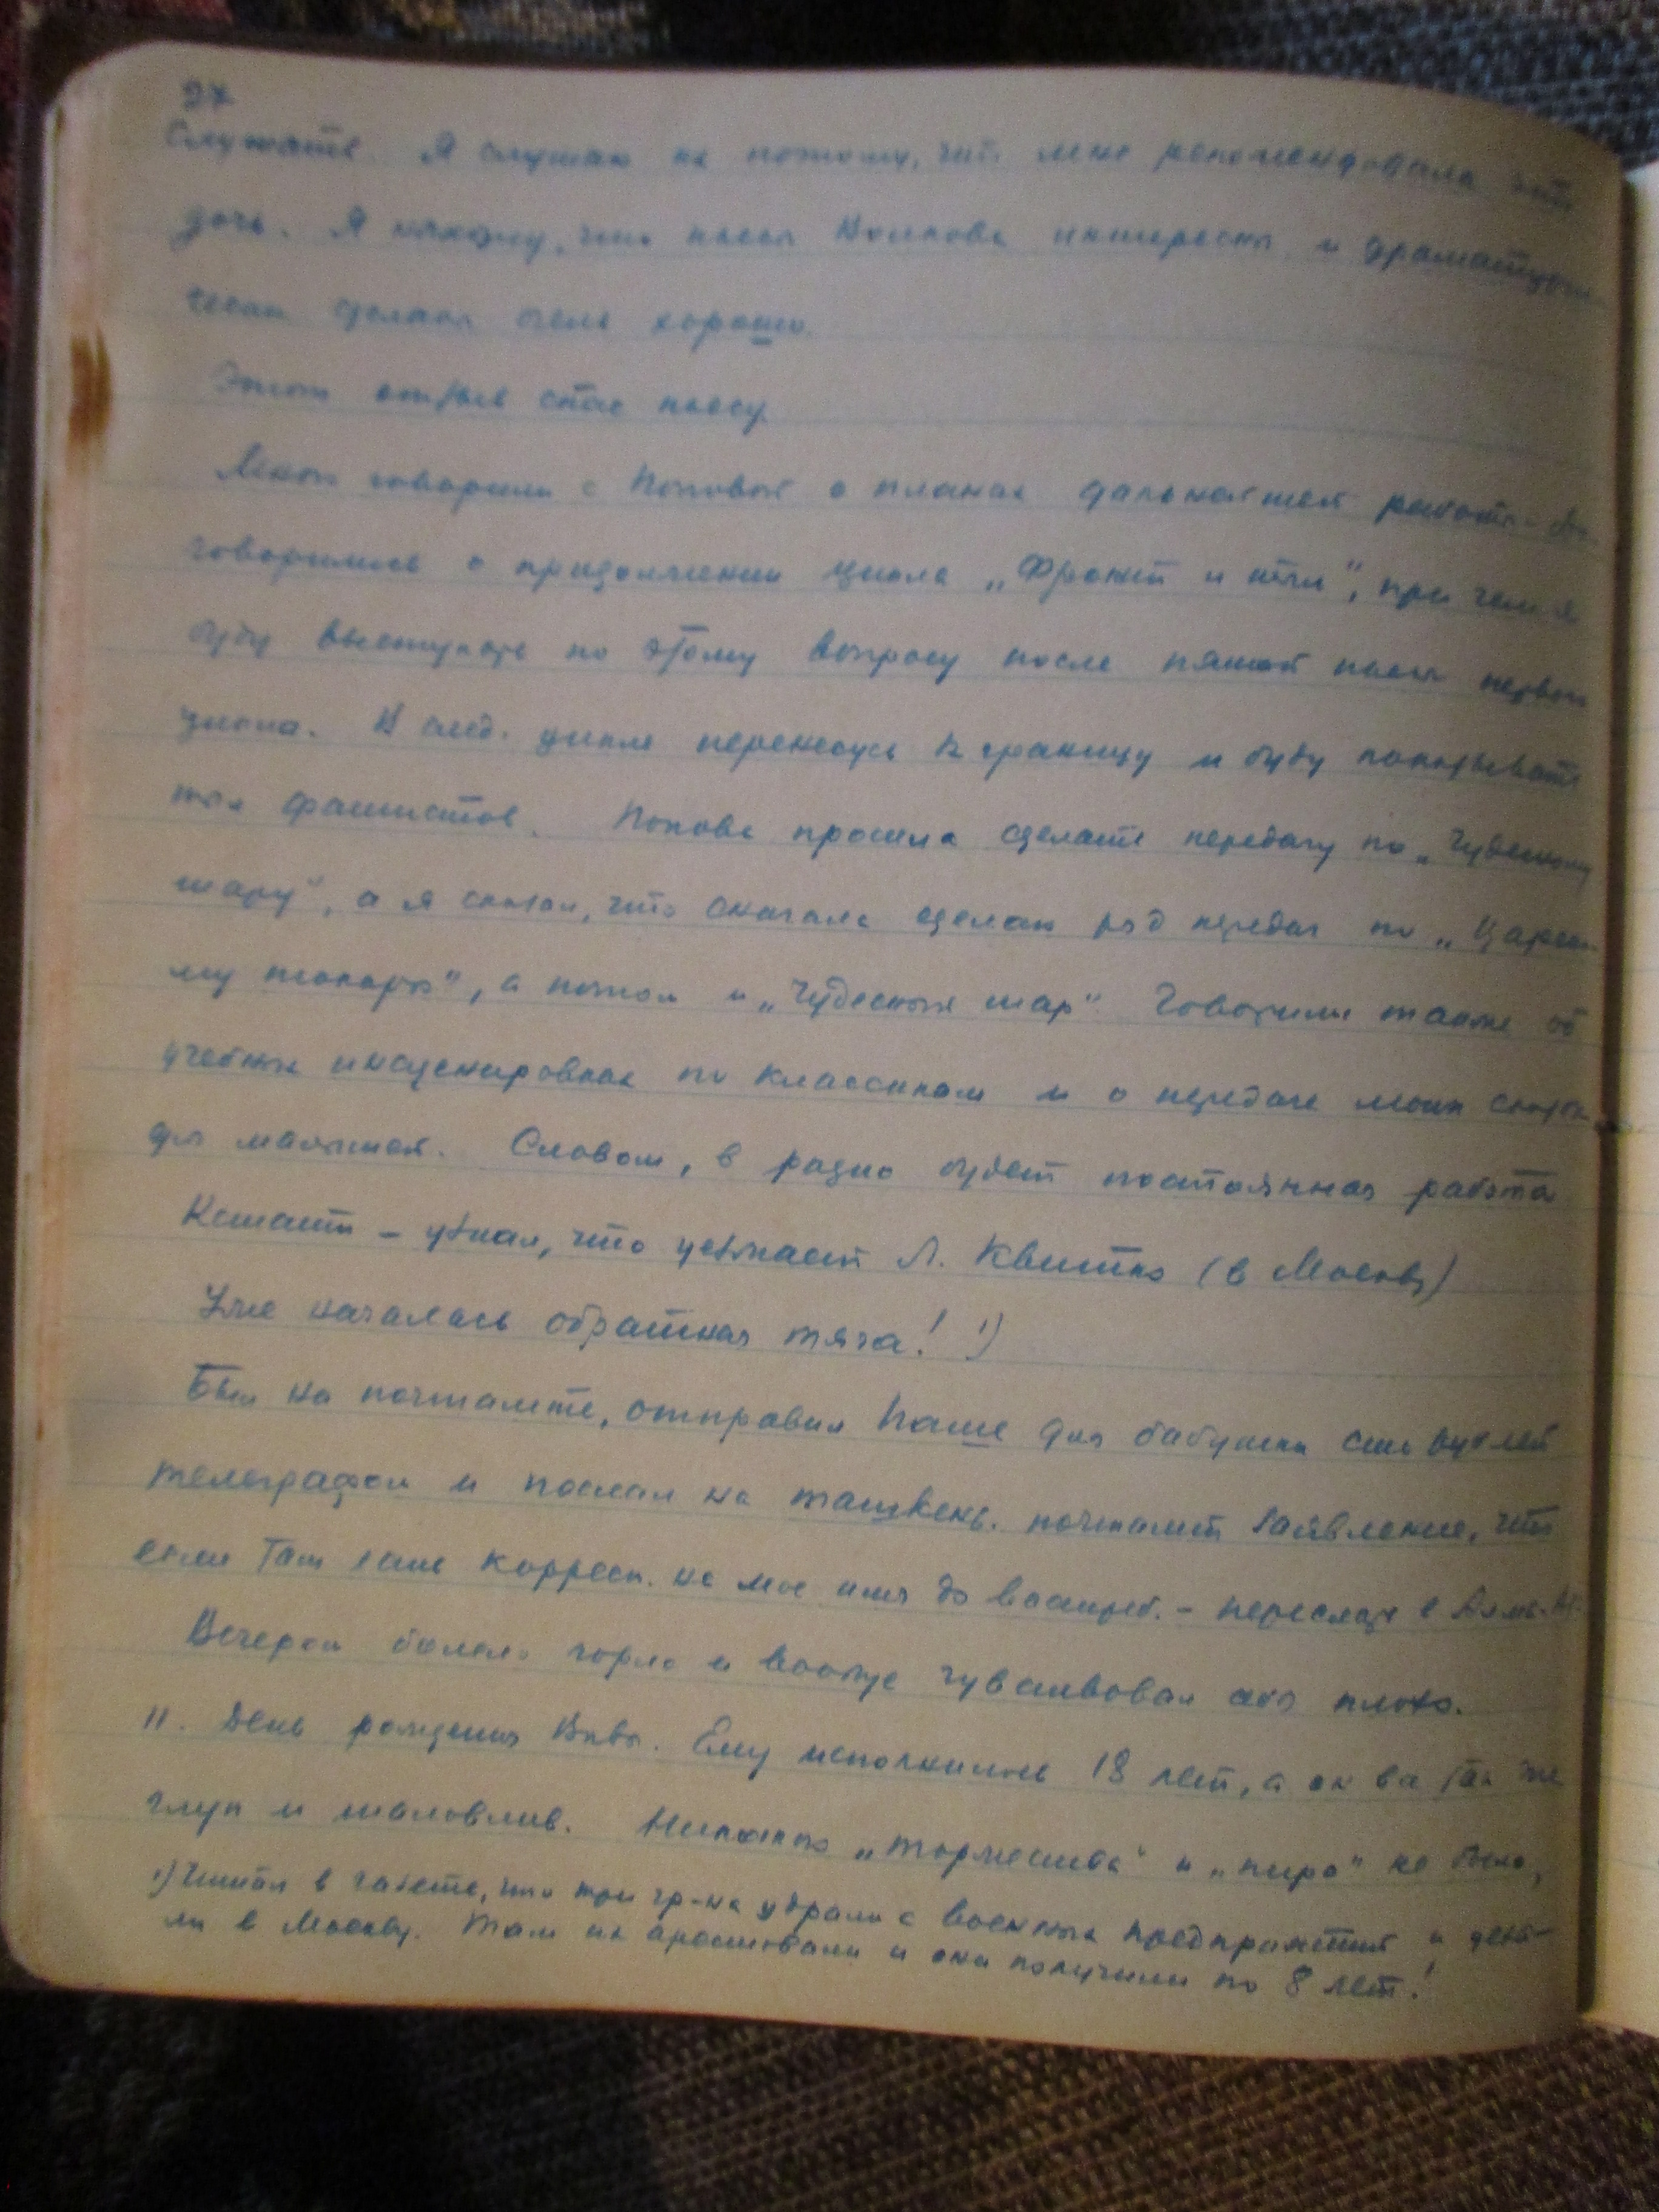 27
слушать. Я слушал не потому, что мне рекомендовала
дочь. Я нахожу, что пьеса Волкова интересна и драматурги-
чески сделана очень хорошо.
Этот отзыв спас пьесу.
Много говорили с Поповой о планах дальнейшей работы.
говорились о продолжении цикла „Фронт и тыл“, при чем я
буду выступать по этому вопросу после пятой пьесы первого
цикла. В след. цикле перенесусь за границу и буду показывать
тыл фашистов. Попова просила сделать передачу по „Чудесному
шару“, а я сказал, что сначала сделаю ряд передач по „Царско-
му токарю“, а потом и „Чудесный шар“. Говорили также об
учебных инсценировках по классикам и о передаче моих сказок
для малышей. Словом, в радио будет постоянная работа.
Кстати – узнал, что уезжает Л. Квитко (в Москву)
Уже началась обратная тяга! ¹)
Был на почтамте, отправил Паше для бабушки сто рублей
телеграфом и послал на ташкен. почтамт заявление, что
если там есть корресп. на мое имя до востреб. – переслать в Алма-А.
Вечером болело горло и вообще чувствовал себя плохо.
11. День рождения Вивы. Ему исполнилось 18 лет, а он все так же
глуп и шаловлив. Никаких „торжества“ и „пира“ не было,
¹) Читал в газете, что три гр-на удрали с военных предприятий и
в Москву. Там их арестовали и они получили по 8 лет!